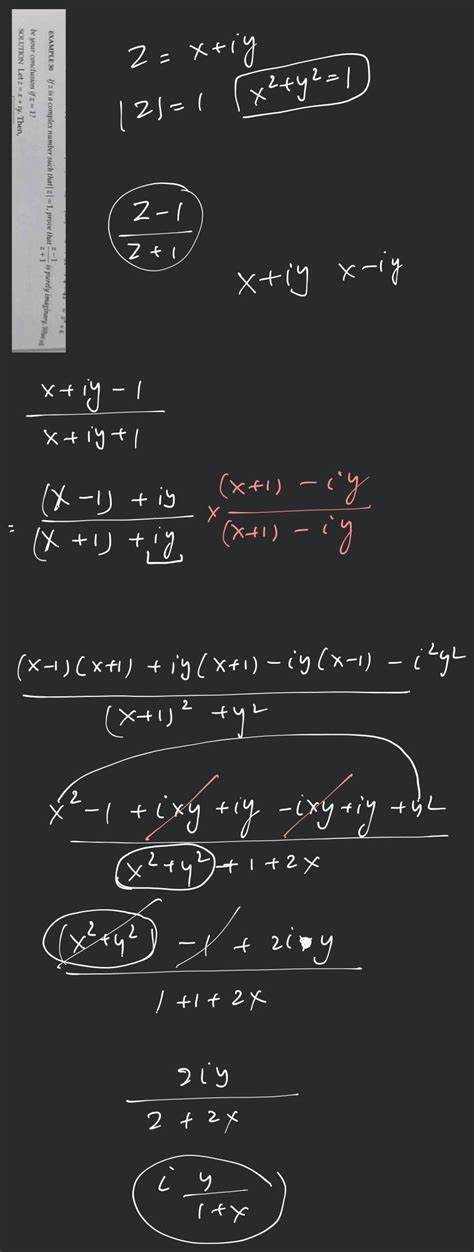 EXAMPLE 30 If z is a complex number such that |z| = 1, prove that \frac{z-1}{z+1} is purely imaginary. What
be your conclusion if z = 1?
SOLUTION Let z = x + iy. Then,
z = x+iy
|z|=1 x²+y²=1
\frac{z-1}{z+1}
x+iy x-iy
\frac{x+iy-1}{x+iy+1}
= \frac{(x-1)+iy}{(x+1)+iy} × \frac{(x+1)-iy}{(x+1)-iy}
\frac{(x-1)(x+1)+iy(x+1)-iy(x-1)-i²y²}{(x+1)²+y²}
\frac{x²-1+ixy+iy-ixy+iy+y²}{x²+y²+1+2x}
\frac{(x²+y²)-1+2iy}{1+1+2x}
\frac{2iy}{2+2x}
i\frac{y}{1+x}